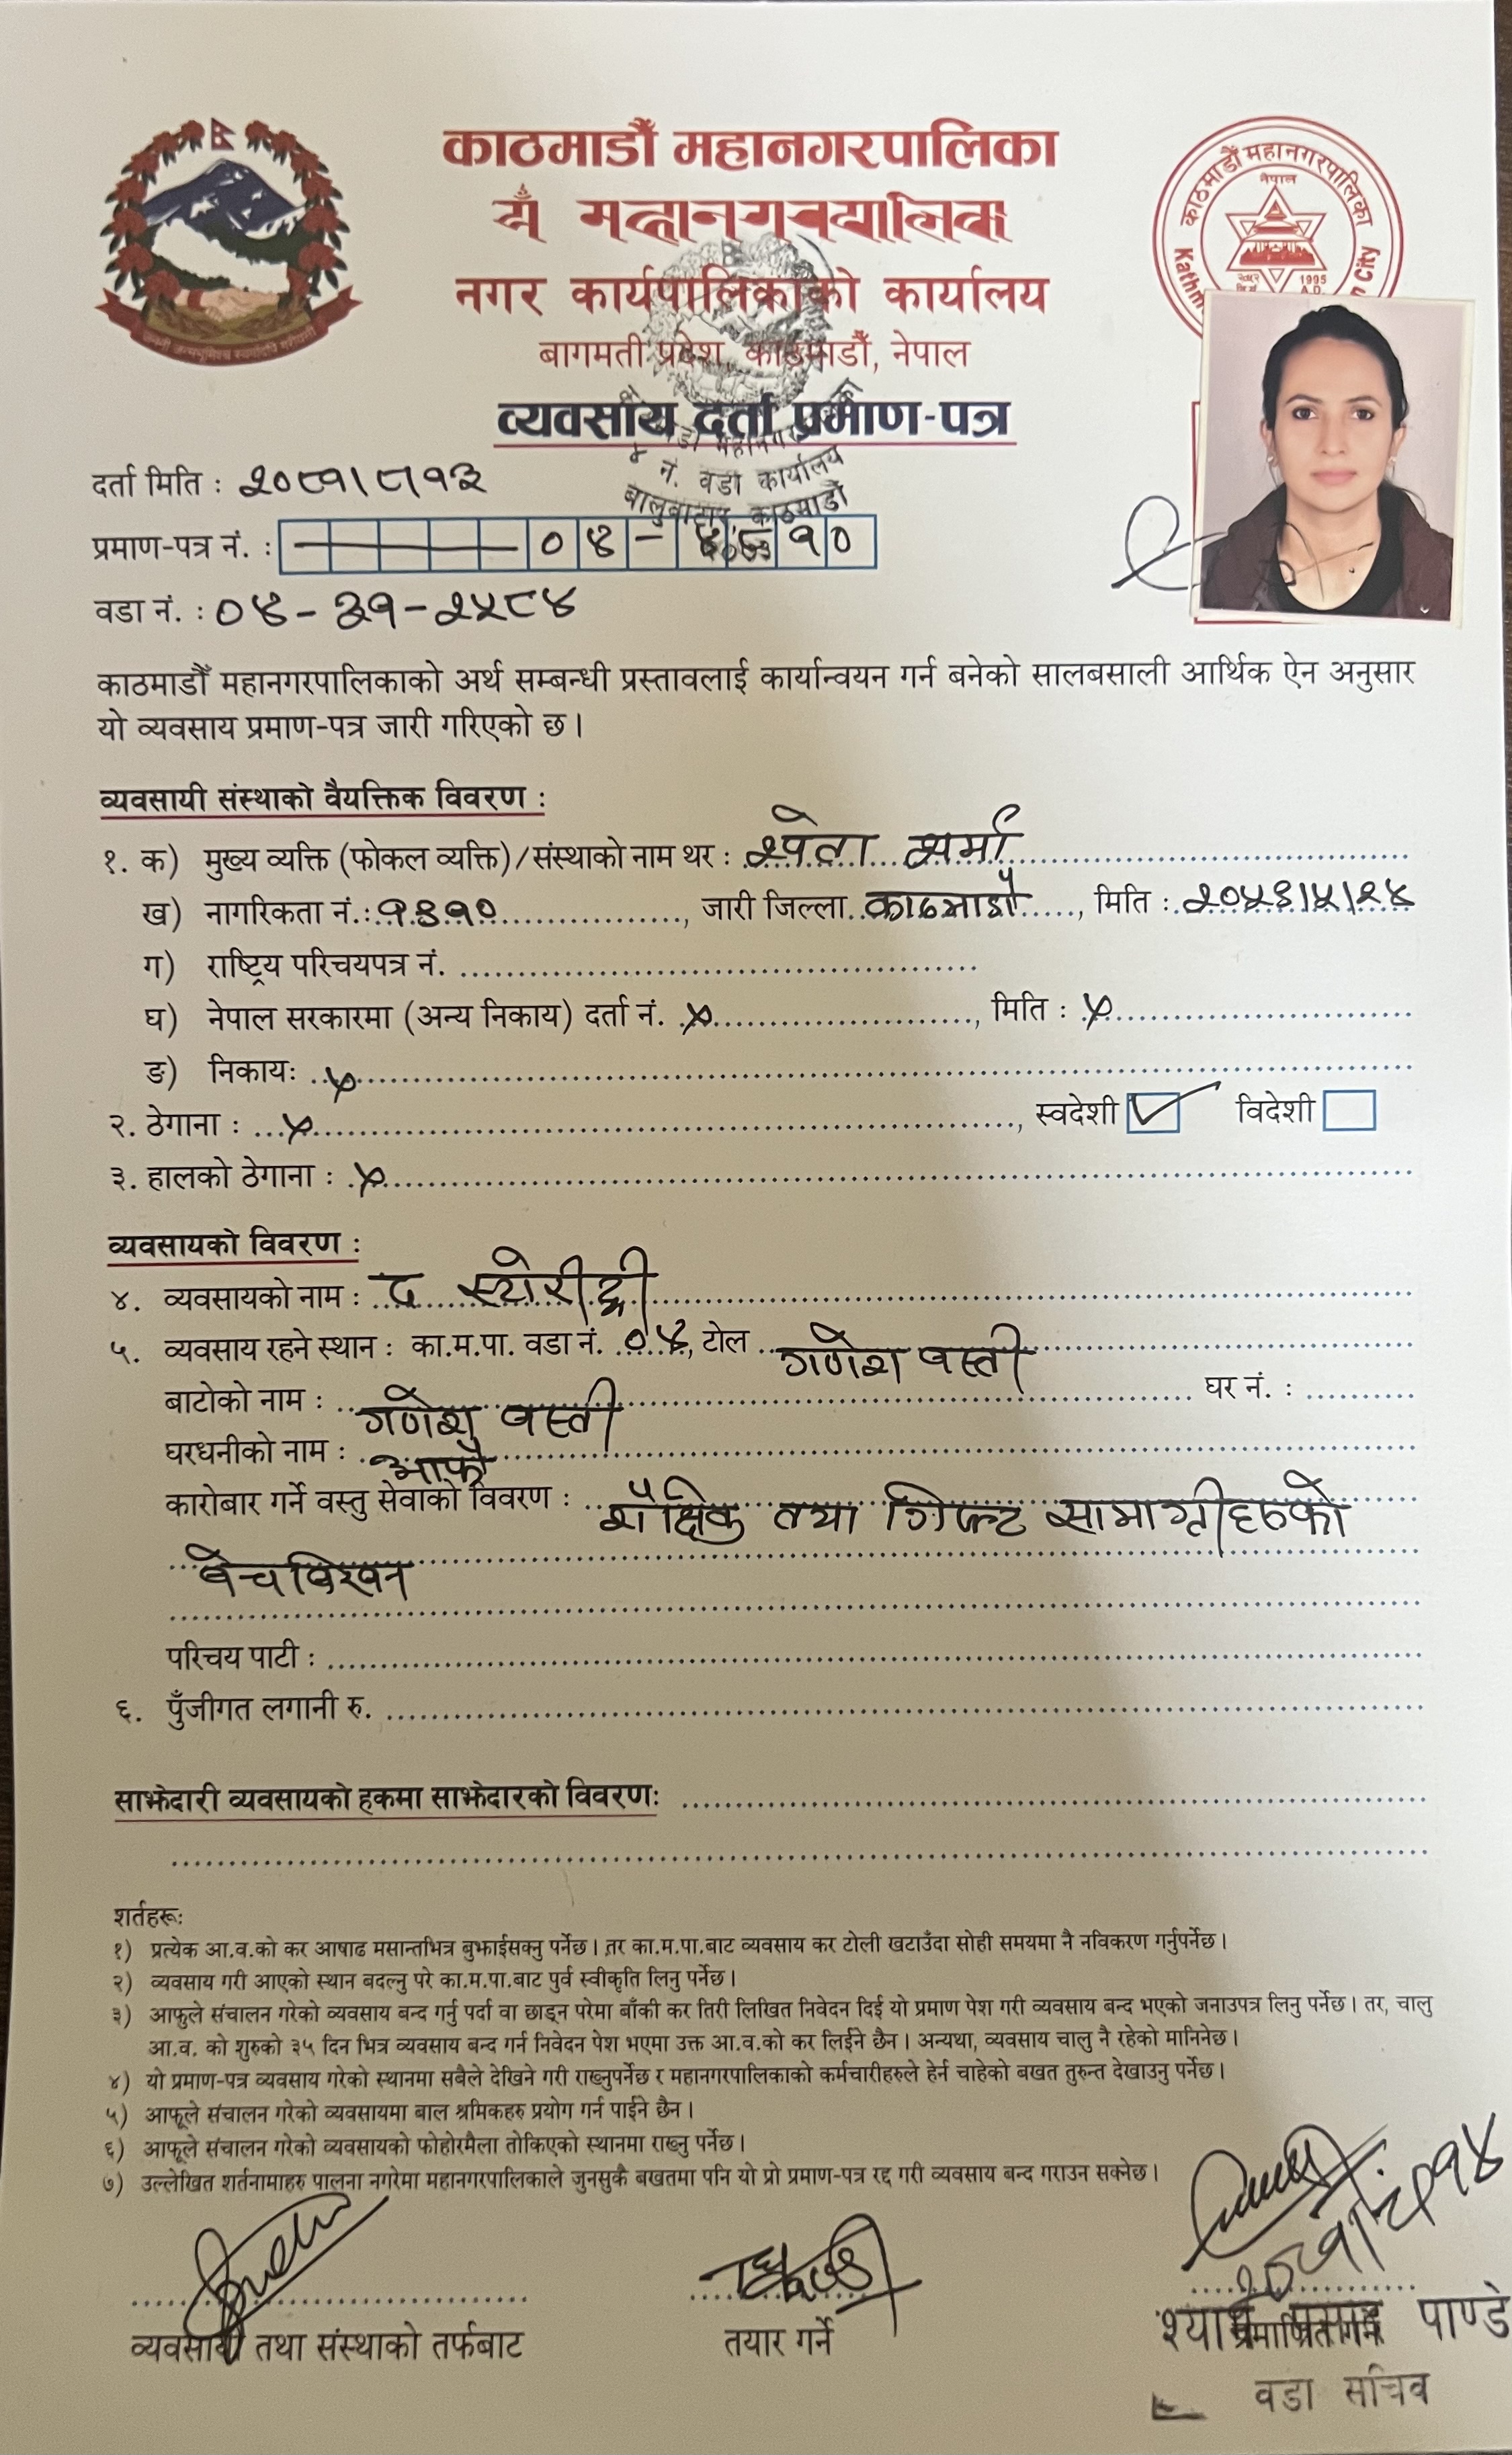 काठमाडौं महानगरपालिका
नगर कार्यपालिकाको कार्यालय
बागमती प्रदेश, काठमाडौं, नेपाल
व्यवसाय दर्ता प्रमाण-पत्र
काठमाडौं महानगरपालिका
नेपाल
1995
A.D.
City
नं. वडा कार्यालय
बालुवाटार, काठमाडौं
दर्ता मिति : २०८१।८।१३
प्रमाण-पत्र नं. : ०४-
१०
वडा नं. : ०४-३१-२५८४
काठमाडौं महानगरपालिकाको अर्थ सम्बन्धी प्रस्तावलाई कार्यान्वयन गर्न बनेको सालबसाली आर्थिक ऐन अनुसार
यो व्यवसाय प्रमाण-पत्र जारी गरिएको छ।
व्यवसायी संस्थाको वैयक्तिक विवरण :
१. क) मुख्य व्यक्ति (फोकल व्यक्ति)/संस्थाको नाम थर : श्वेता शर्मा
ख) नागरिकता नं.: १३१०, जारी जिल्ला काठमाडौं, मिति :
ग) राष्ट्रिय परिचयपत्र नं.
घ) नेपाल सरकारमा (अन्य निकाय) दर्ता नं. x, मिति : x
ङ) निकायः x
२. ठेगाना : x, स्वदेशी ✓ विदेशी
३. हालको ठेगाना : x
व्यवसायको विवरण :
४. व्यवसायको नाम : द स्टोरी ट्री
५. व्यवसाय रहने स्थान : का.म.पा. वडा नं. ०४, टोल गणेश वस्ती
बाटोको नाम : गणेश वस्ती घर नं. :
घरधनीको नाम : आफै
कारोबार गर्ने वस्तु सेवाको विवरण : शैक्षिक तथा गिफ्ट सामाग्रीहरुको
बेचबिखन
परिचय पाटी :
६. पुँजीगत लगानी रु.
साझेदारी व्यवसायको हकमा साझेदारको विवरणः
शर्तहरूः
१) प्रत्येक आ.व.को कर आषाढ मसान्तभित्र बुझाईसक्नु पर्नेछ। तर का.म.पा.बाट व्यवसाय कर टोली खटाउँदा सोही समयमा नै नविकरण गर्नुपर्नेछ।
२) व्यवसाय गरी आएको स्थान बदल्नु परे का.म.पा.बाट पुर्व स्वीकृति लिनु पर्नेछ।
३) आफुले संचालन गरेको व्यवसाय बन्द गर्नु पर्दा वा छाड्न परेमा बाँकी कर तिरी लिखित निवेदन दिई यो प्रमाण पेश गरी व्यवसाय बन्द भएको जनाउपत्र लिनु पर्नेछ। तर, चालु
आ.व. को शुरुको ३५ दिन भित्र व्यवसाय बन्द गर्न निवेदन पेश भएमा उक्त आ.व.को कर लिईने छैन। अन्यथा, व्यवसाय चालु नै रहेको मानिनेछ।
४) यो प्रमाण-पत्र व्यवसाय गरेको स्थानमा सबैले देखिने गरी राख्नुपर्नेछ र महानगरपालिकाको कर्मचारीहरुले हेर्न चाहेको बखत तुरुन्त देखाउनु पर्नेछ।
५) आफूले संचालन गरेको व्यवसायमा बाल श्रमिकहरु प्रयोग गर्न पाईने छैन।
६) आफूले संचालन गरेको व्यवसायको फोहोरमैला तोकिएको स्थानमा राख्नु पर्नेछ।
७) उल्लेखित शर्तनामाहरु पालना नगरेमा महानगरपालिकाले जुनसुकै बखतमा पनि यो प्रो प्रमाण-पत्र रद्द गरी व्यवसाय बन्द गराउन सक्नेछ।
व्यवसायी तथा संस्थाको तर्फबाट
तयार गर्ने
प्रमाणित गर्ने
श्याम प्रसाद पाण्डे
वडा सचिव